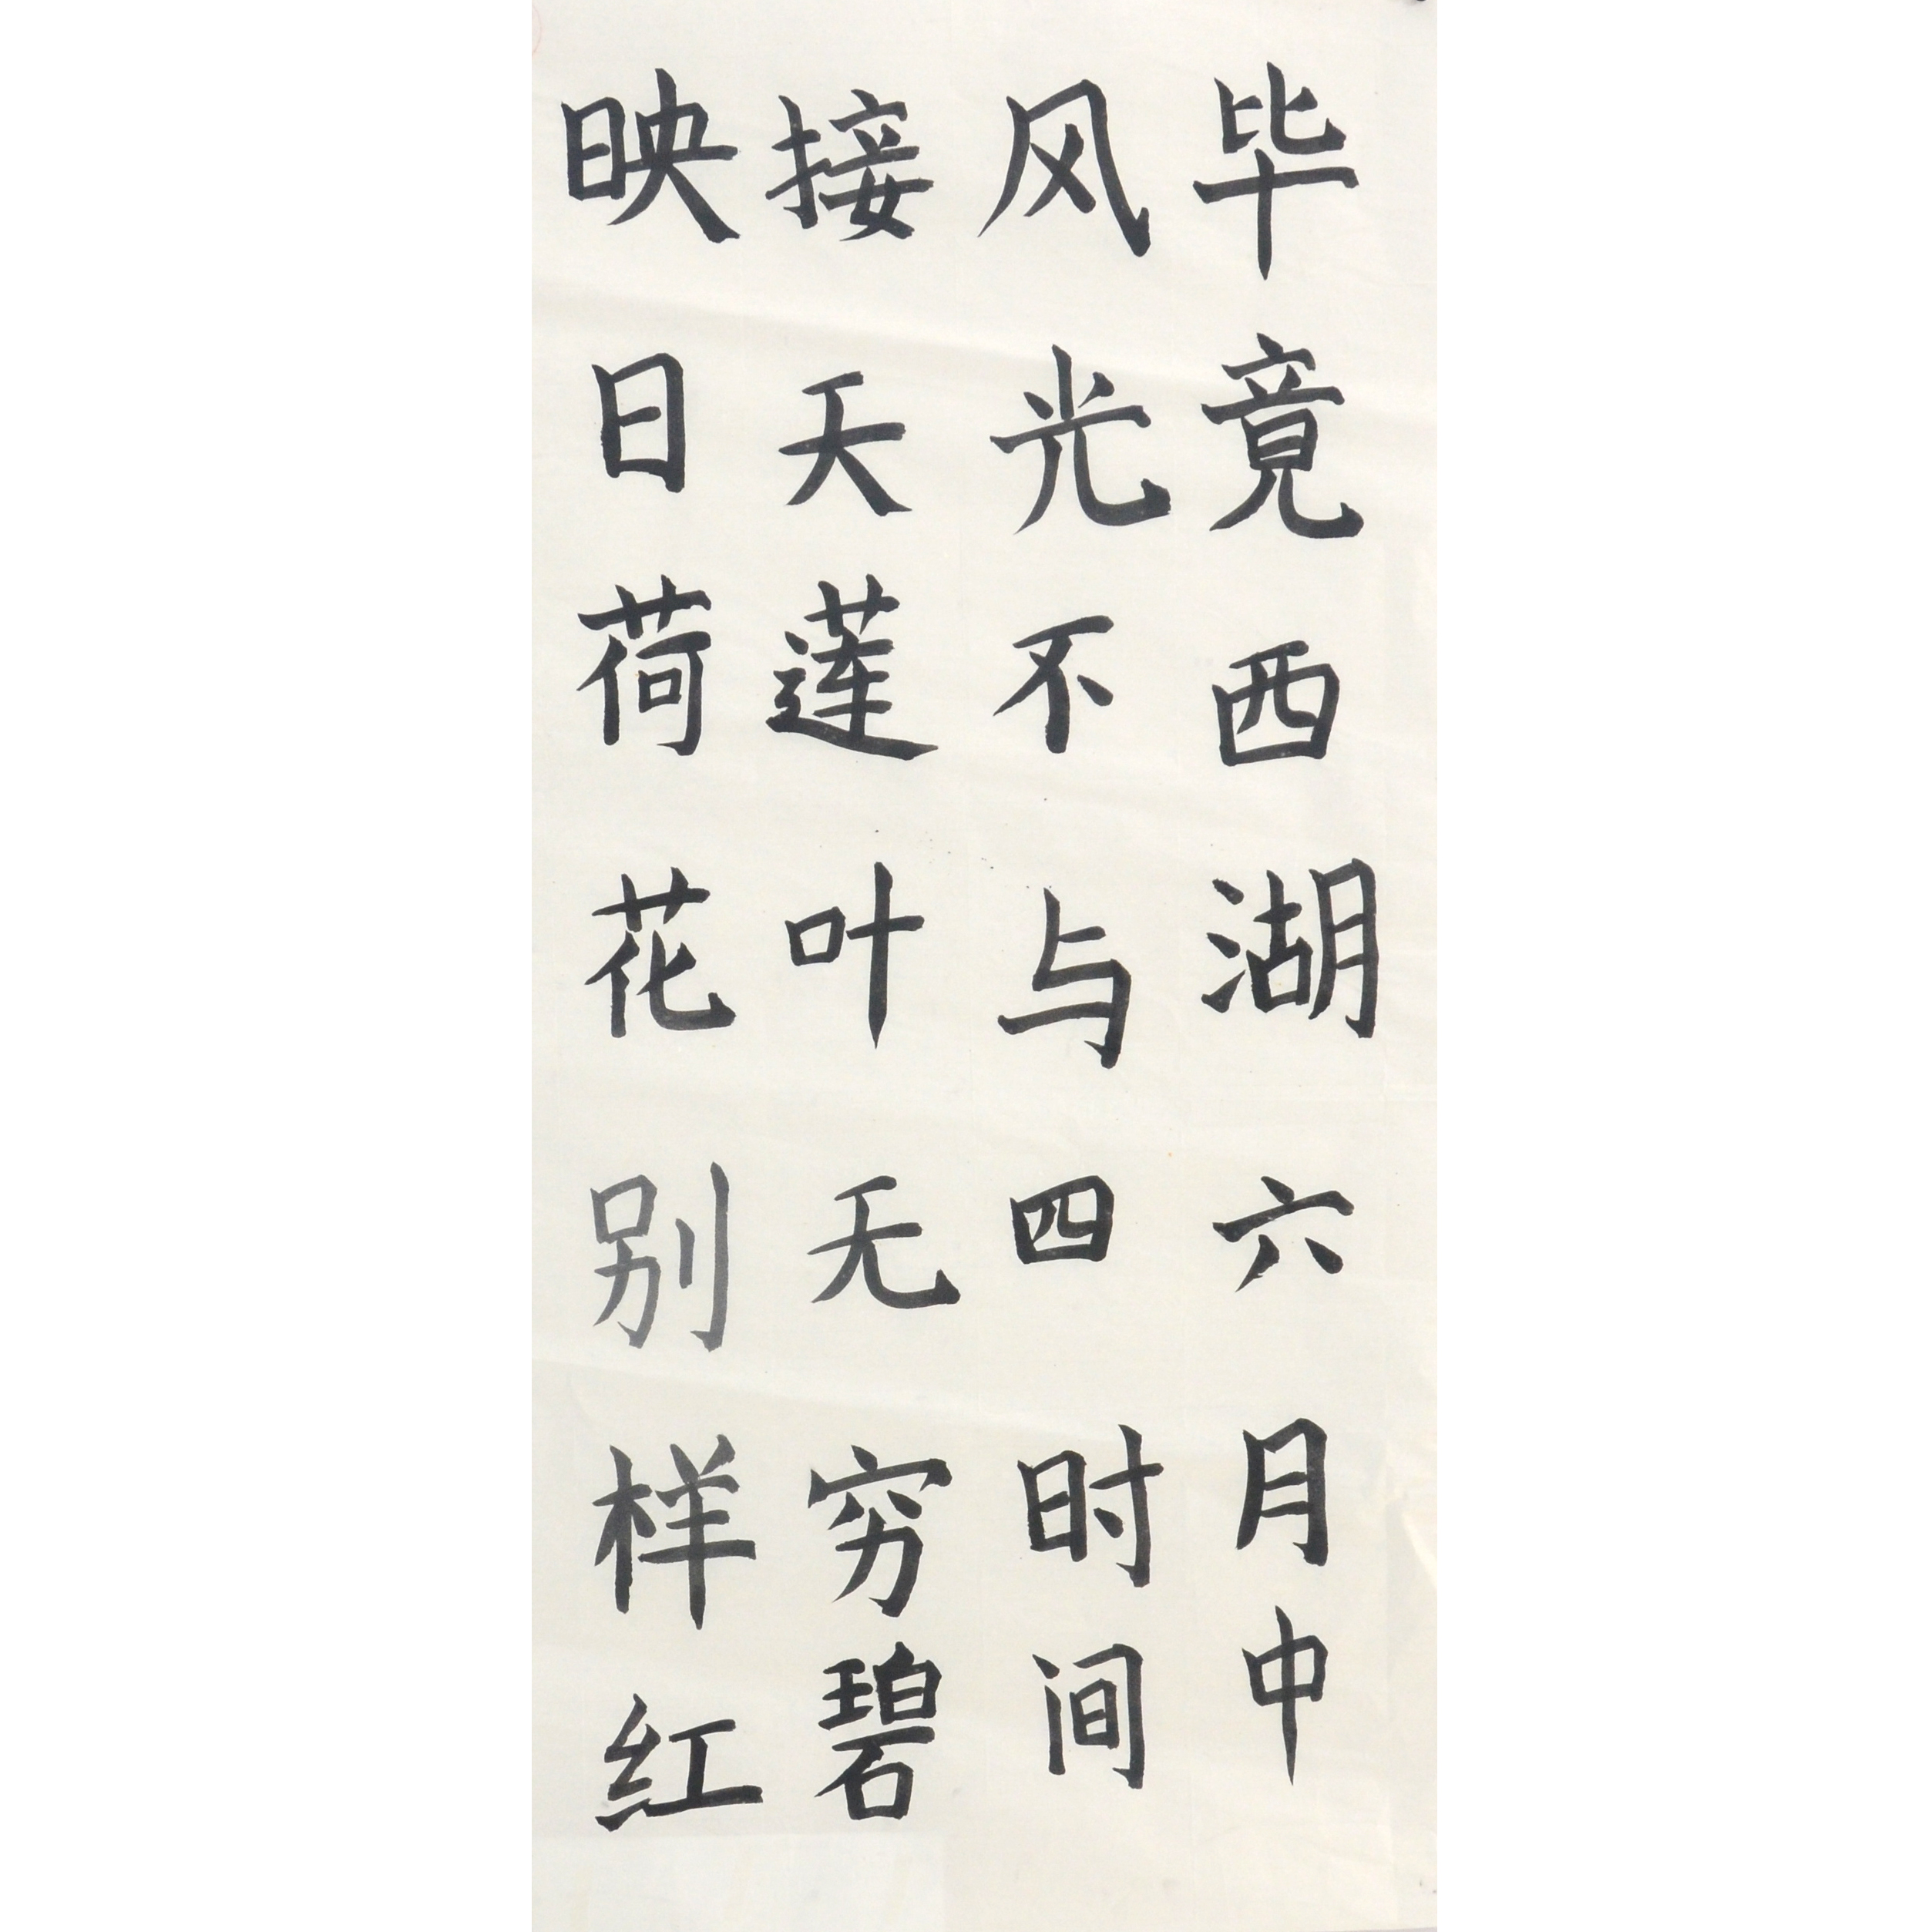 毕竟西湖六月中
风光不与四时间
接天莲叶无穷碧
映日荷花别样红